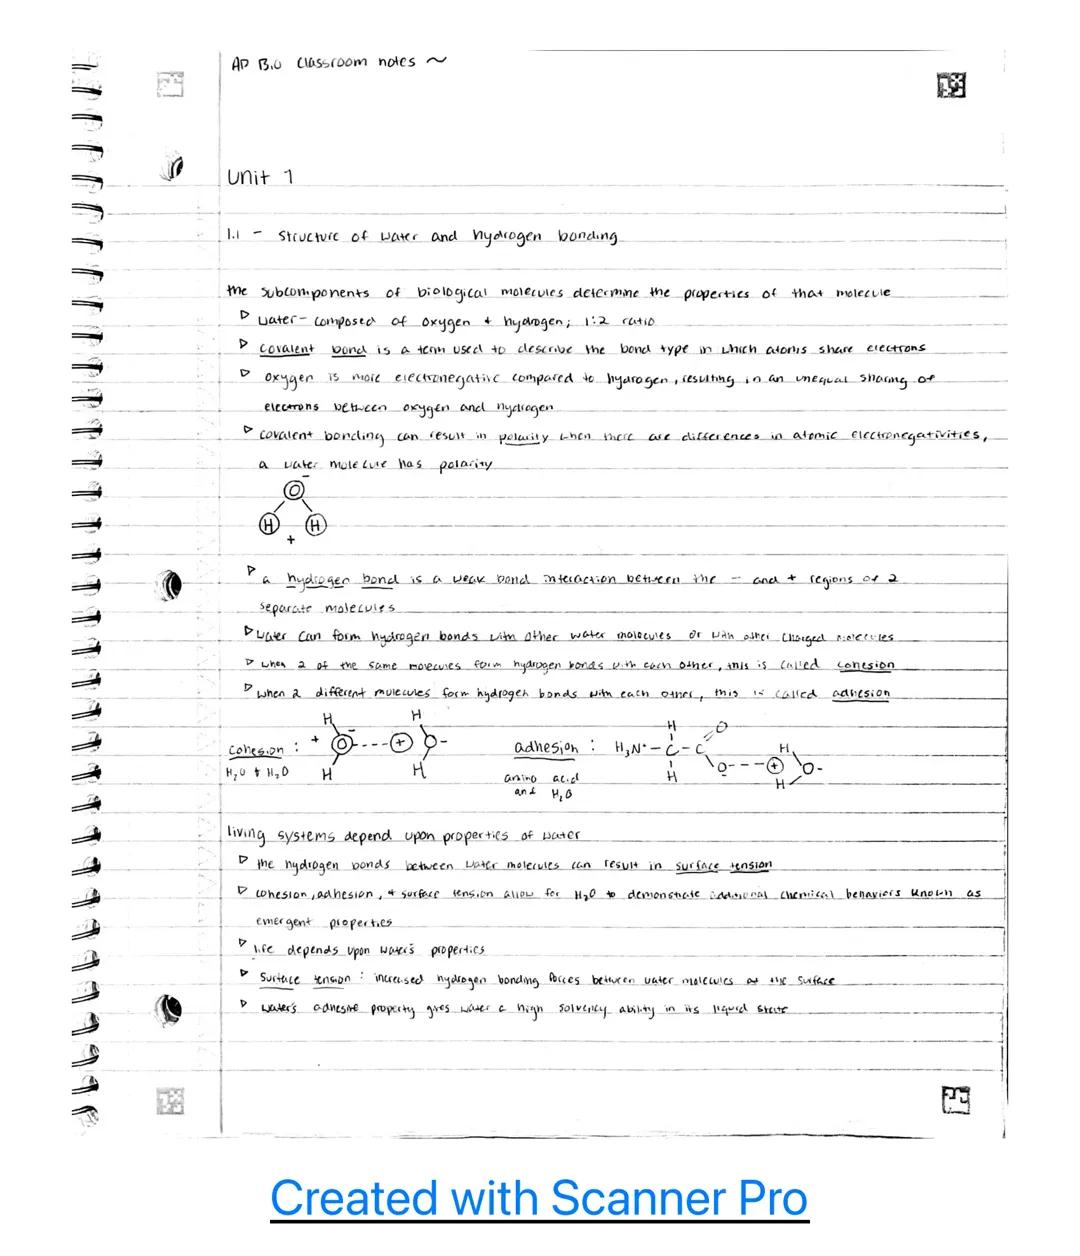 AP Bio Classroom notes ~
Unit 1
1.1 - Structure of water and hydrogen bonding
the subcomponents of biological molecules determine the properties of that molecule
▷ water - composed of oxygen + hydrogen; 1:2 ratio
▷ covalent bond is a term used to describe the bond type in which atoms share electrons
▷ oxygen is more electronegative compared to hydrogen, resulting in an unequal sharing of
electrons between oxygen and hydrogen
▷ covalent bonding can result in polarity when there are differences in atomic electronegativities,
a water molecule has polarity
-
O
H H
+
▷ a hydrogen bond is a weak bond interaction between the - and + regions of 2
separate molecules
▷ water can form hydrogen bonds with other water molecules or with other charged molecules
▷ when 2 of the same molecules form hydrogen bonds with each other, this is called cohesion
▷ when 2 different molecules form hydrogen bonds with each other, this is called adhesion
H H H O
cohesion : + O - --- + O - adhesion : H₃N⁺ - C - C H
H₂O + H₂O H H amino acid H O --- + O -
and H₂O H
living systems depend upon properties of water
▷ the hydrogen bonds between water molecules can result in surface tension
▷ cohesion, adhesion, + surface tension allow for H₂O to demonstrate additional chemical behaviors known as
emergent properties
▷ life depends upon water's properties
▷ Surface tension : increased hydrogen bonding forces between water molecules at the surface
▷ water's adhesive property gives water a high solvency ability in its liquid state
Created with Scanner Pro